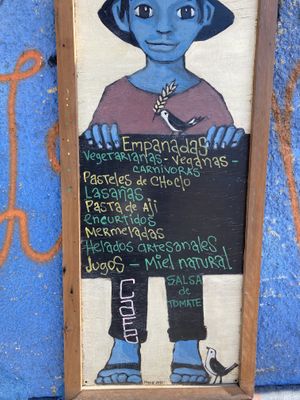 EMPANADAS
Vegetarianas - Veganas -
CARNIVORAS
PASTELES DE CHOCLO
LASAÑAS
PASTA DE AJI
encurtidos
MERMELADAS
Helados ARTESANALES
JUGOS - MIEL natural
CAFE
SALSA
DE
TOMATE